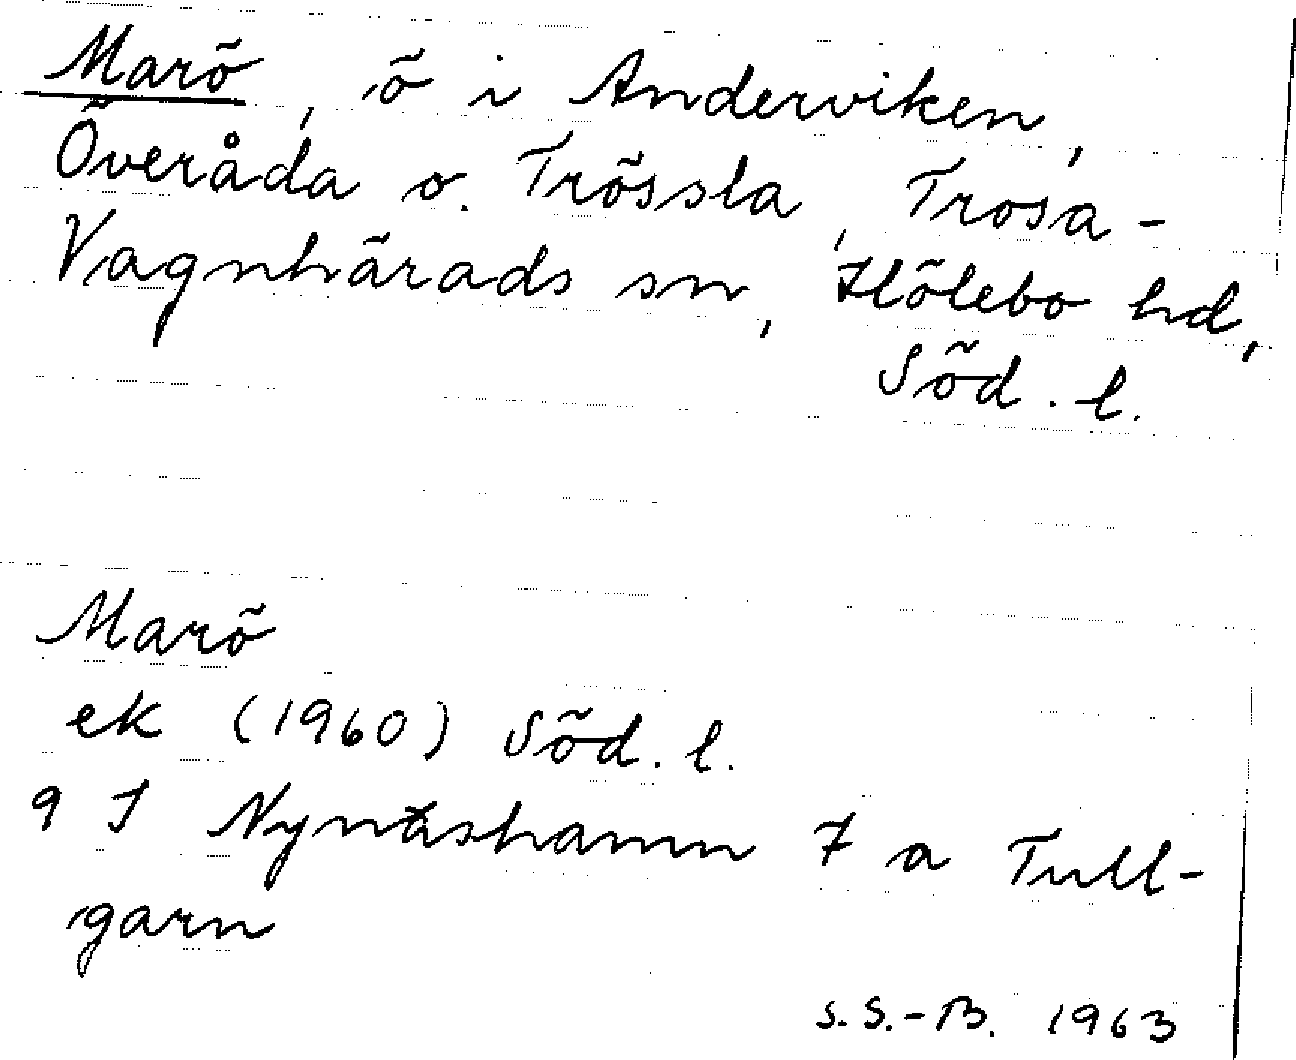 Marö, ö i Anderviken,
Överåda o. Trössla, Trosa-
Vagnhärads sn, Hölebo hd,
Söd. l.
Marö
ek (1960) Söd. l.
9 I Nynäshamn 7 a Tull-
garn
S. S.-B. 1963